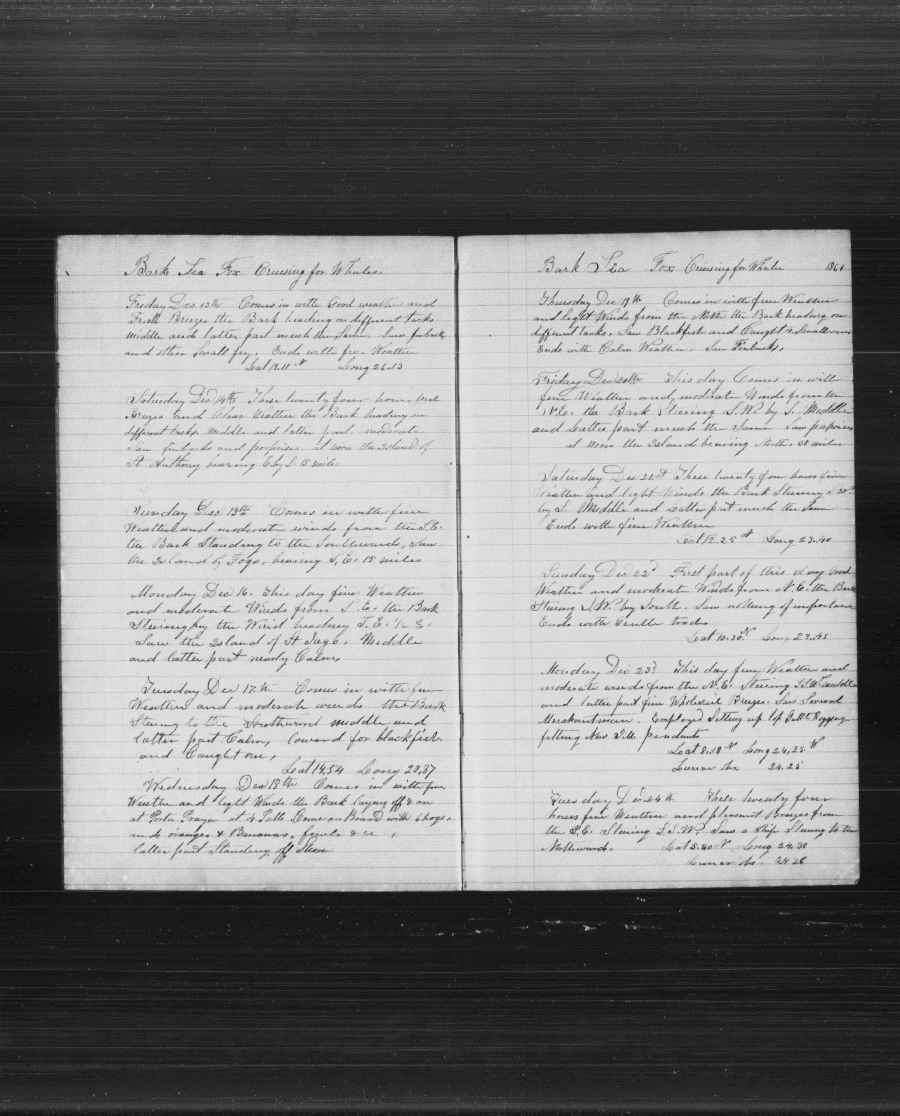 Bark Sea Fox Cruising for Whales.
Friday Dec 13th Comes in with Good weather and
Fresh Breezes the Bark heading on different tacks
Middle and latter part much the Same. Saw finbacks
and other Small fry. Ends with fine Weather
Lat 18.11 N Long 26.13
Saturday Dec 14th These twenty four hours best
Brezes and Clear Weather the Bark heading on
different tacks Middle and latter part, moderate
Saw finbacks and porpoises at noon the Island of
St Anthony bearing E by S. 15 miles
Sunday Dec 15th Comes in with fine
Weather and moderate winds from the S.E.
the Bark Standing to the Southward, Saw
the Island of Fogo, bearing S.E. 15 miles
Monday Dec 16. This day fine Weather
and moderate Winds from S.E. the Bark
Stering by the Wind heading S.E. 1/2 E.
Saw the Island of St Jago. Middle
and latter part newly Calm,
Tuesday Dec 17th Comes in with fine
Weather and moderate winds the Bark
Stering to the Southward middle and
latter part Calm, lowerd for blackfish
and Caught one,
Lat 14,54 Long 23,37
Wednesday Dec 18th Comes in with fine
Weather and light Winds the Bark laying off & on
at Porto Praya at 4 Come on Board with 6 hogs,
and oranges & Bananas, fowls & cc.,
latter part Standing off Shore
Bark Sea Fox Cruising for Whales 1861
Thursday Dec 19th Comes in with fine Weather
and light Winds from the North the Bark heading on
different tacks. Saw Blackfish and Caught 4 Small ones
Ends with Calm Weather. Saw Finbacks,
Friday Dec 20th This day Comes in with
fine Weather and modrate Winds from the
N.E. the Bark Stering S.W. by S. Middle
and latter part much the Same Saw poposies
at Noon the Island bearing North. 30 miles
Saturday Dec 21st These twenty four hours fine
Weather and light Winds the Bark Stering S.W.
by S. Middle and Latter part much the Same
Ends with fine Weather
Lat 12.25 N Long 23.40
Sunday Dec 22d First part of this day Good
Weather and moderate Winds from N.E. the Bark
Stering S.W. by South. Saw nothing of importance
Ends with Gentle trades
Lat 10.30 N Long 23.45
Monday Dec 23d This day fine Weather and
moderate winds from the N.E. Stering S.S.W. middle
and latter part fine Wholesail Breezes. Saw Several
Merchantmen. Employed Setting up top Gallt Rigging
fitting New pendants
Lat 8.18 N Long 24,25 W
Lunar obs 24.25
Tuesday Dec 24th These twenty four
hours fine Weather and pleasant Breezes from
the S.E. Stering S.S.W. Saw a Ship Stering to the
Northward. Lat 5.40 N Long 24.30
Lunar obs. 24.26